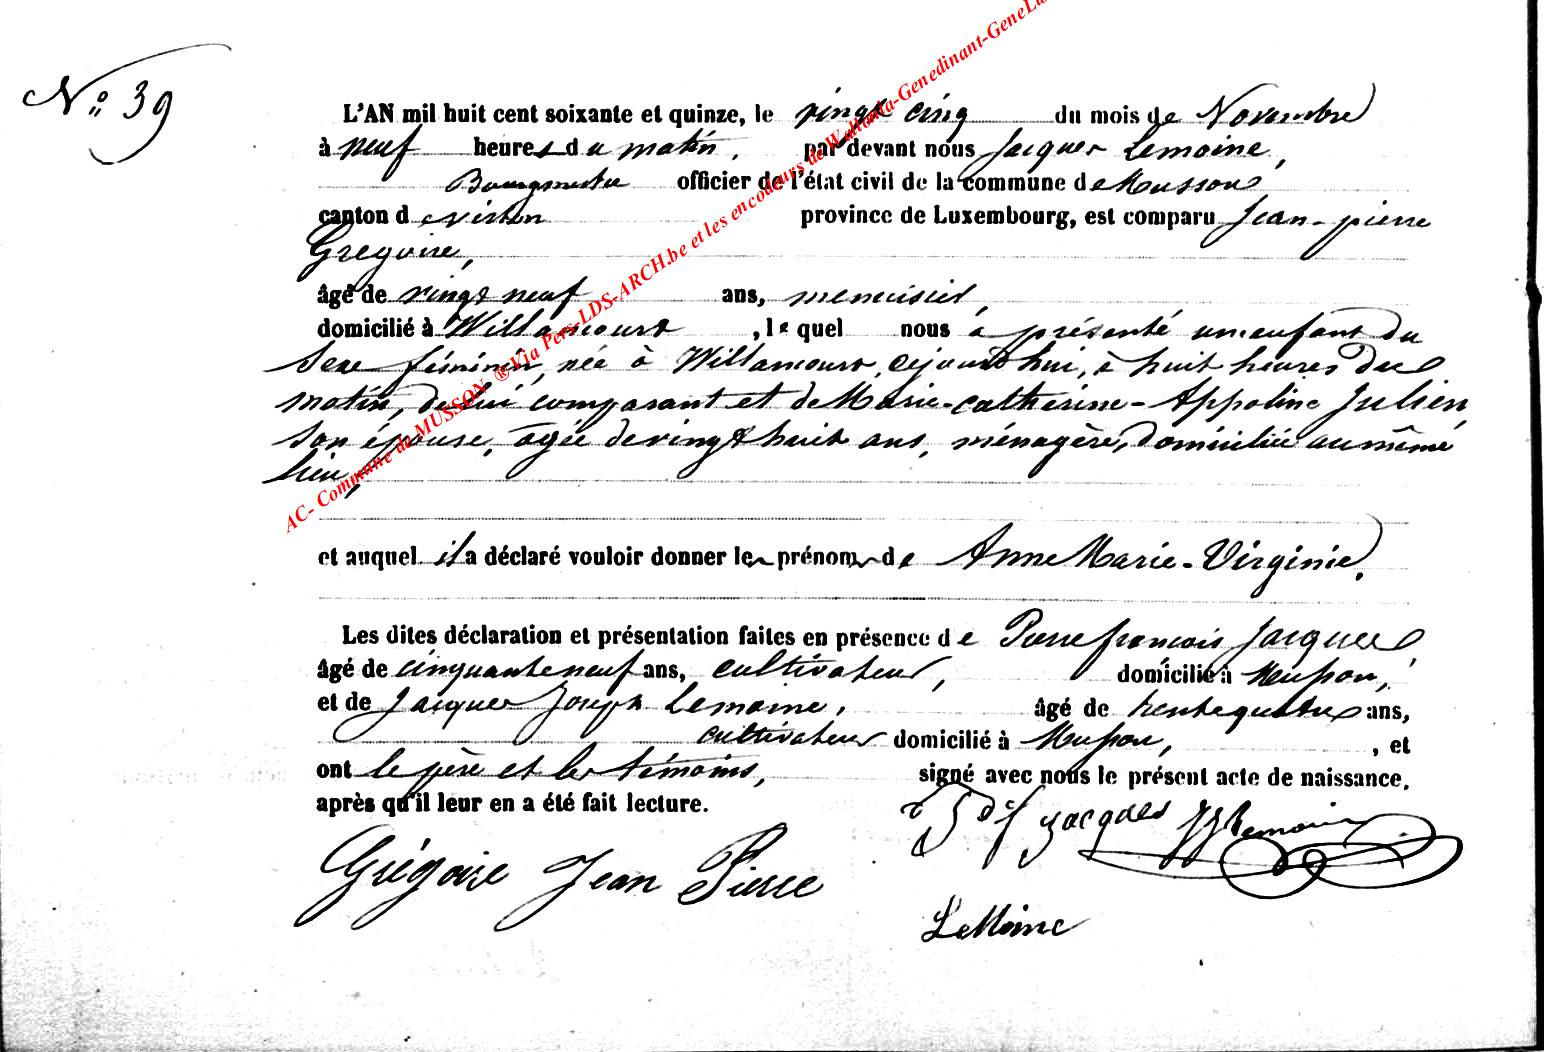 N° 39
L'AN mil huit cent soixante et quinze, le vingt cinq du mois de Novembre
à neuf heures du matin, par devant nous Jacques Lemoine,
Bourgmestre officier de l'état civil de la commune de Musson
canton de virton province de Luxembourg, est comparu Jean-pierre
Gregoire,
âgé de vingt neuf ans, menuisier,
domicilié à Willancourt, lequel nous a présenté un enfant du
sexe féminin, née à Willancourt, cejourd'hui, à huit heures du
matin, de lui comparant et de Marie-Catherine-Appoline Julien
son épouse, âgée de vingt huit ans, ménagère, domiciliée au même
lieu,
et auquel il a déclaré vouloir donner les prénoms de Anne Marie-Virginie.
Les dites déclaration et présentation faites en présence de Pierre françois Jacques,
âgé de cinquante neuf ans, cultivateur, domicilié à Musson,
et de Jacques Joseph Lemoine, âgé de trente quatre ans,
cultivateur domicilié à Musson, , et
ont le père et les témoins, signé avec nous le présent acte de naissance,
après qu'il leur en a été fait lecture.
Jacques JJ Lemoine
Grégoire Jean Pierre
LeMoine
AC- Commune de MUSSON ®Via Pers-LDS-ARCH.be et les encodeurs de Wallonia-Genedinant-GeneLux